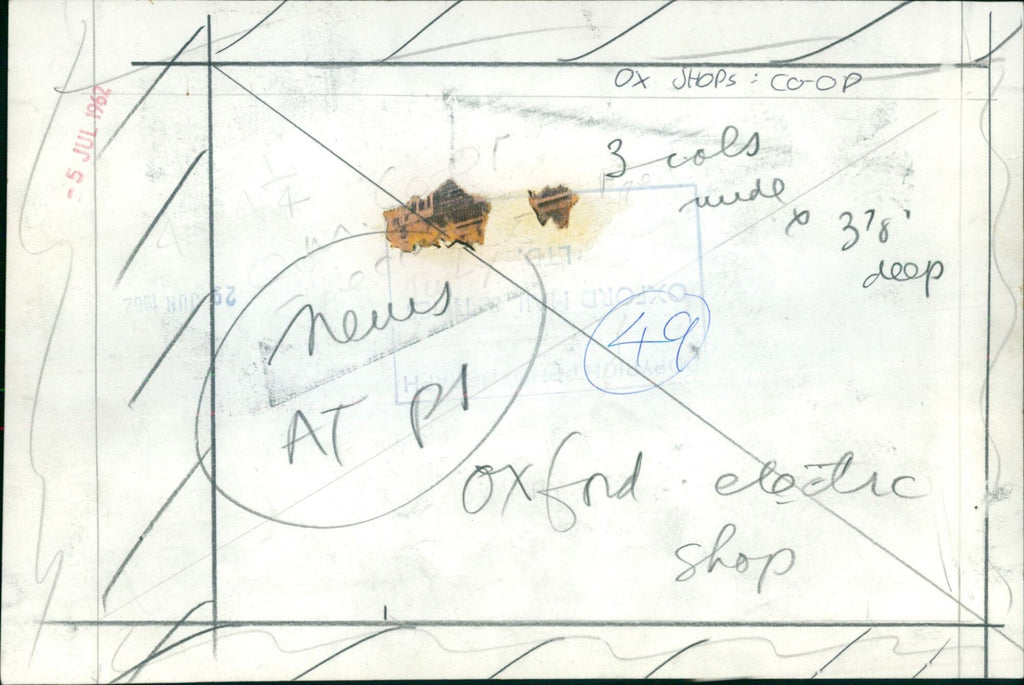 OX SHOPS : CO-OP
- 5 JUL 1962
3 cols
wide
x 3 7/8"
deep
LTD.
OXFORD
49
News
AT P1
Oxford electric
shop